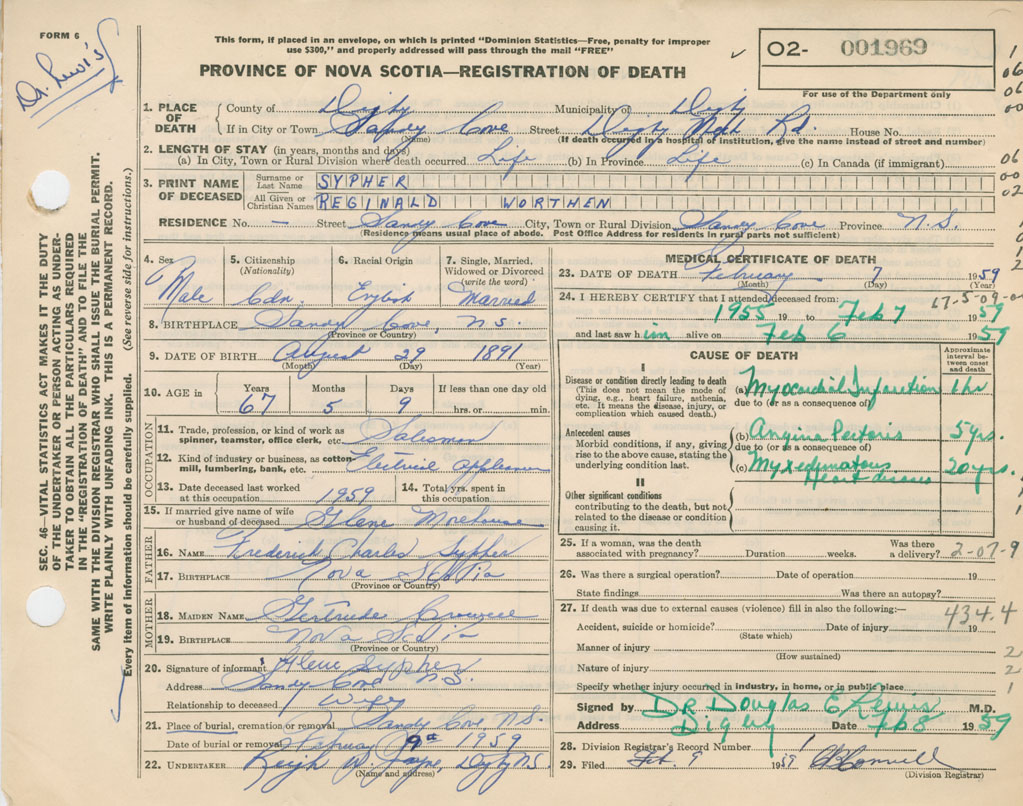 FORM 6
Dr. Lewis
This form, if placed in an envelope, on which is printed "Dominion Statistics—Free, penalty for improper
use $300," and properly addressed will pass through the mail "FREE"
PROVINCE OF NOVA SCOTIA—REGISTRATION OF DEATH
O2- 001969
For use of the Department only
SEC. 46—VITAL STATISTICS ACT MAKES IT THE DUTY
OF THE UNDERTAKER OR PERSON ACTING AS UNDER-
TAKER TO OBTAIN ALL THE PARTICULARS REQUIRED
IN THE "REGISTRATION OF DEATH" AND TO FILE THE
SAME WITH THE DIVISION REGISTRAR WHO SHALL ISSUE THE BURIAL PERMIT.
WRITE PLAINLY WITH UNFADING INK. THIS IS A PERMANENT RECORD.
Every item of information should be carefully supplied. (See reverse side for instructions.)
1. PLACE OF DEATH County of Digby Municipality of Digby
If in City or Town Sandy Cove Street Digby Neck Rd. House No.
(Name) (If death occurred in a hospital or institution, give the name instead of street and number)
2. LENGTH OF STAY (in years, months and days)
(a) In City, Town or Rural Division where death occurred Life (b) In Province Life (c) In Canada (if immigrant)
3. PRINT NAME OF DECEASED Surname or Last Name SYPHER
All Given or Christian Names REGINALD WORTHEN
RESIDENCE No. — Street Sandy Cove City, Town or Rural Division Sandy Cove Province N.S.
(Residence means usual place of abode. Post Office Address for residents in rural parts not sufficient)
4. Sex Male
5. Citizenship (Nationality) Cdn.
6. Racial Origin English
7. Single, Married, Widowed or Divorced (write the word) Married
8. BIRTHPLACE Sandy Cove, N.S.
(Province or Country)
9. DATE OF BIRTH August 29 1891
(Month) (Day) (Year)
10. AGE in Years 67 Months 5 Days 9 If less than one day old hrs. or min.
OCCUPATION
11. Trade, profession, or kind of work as spinner, teamster, office clerk, etc. Salesman
12. Kind of industry or business, as cotton mill, lumbering, bank, etc. Electrical appliances
13. Date deceased last worked at this occupation 1959 14. Total yrs. spent in this occupation
15. If married give name of wife or husband of deceased Ilene Morehouse
FATHER
16. NAME Frederick Charles Sypher
17. BIRTHPLACE Nova Scotia
(Province or Country)
MOTHER
18. MAIDEN NAME Gertrude Crowell
19. BIRTHPLACE Nova Scotia
(Province or Country)
20. Signature of informant Ilene Sypher
Address Sandy Cove N.S.
Relationship to deceased Wife
21. Place of burial, cremation or removal Sandy Cove, N.S.
Date of burial or removal February 9th 1959
22. UNDERTAKER W. Digby N.S.
(Name and address)
MEDICAL CERTIFICATE OF DEATH
23. DATE OF DEATH February 7 1959
(Month) (Day) (Year)
24. I HEREBY CERTIFY that I attended deceased from:
17-5-09-0
1955 19 to Feb 7 1959
and last saw him alive on Feb 6 1959
CAUSE OF DEATH
Approximate interval between onset and death
I
Disease or condition directly leading to death
(This does not mean the mode of dying, e.g., heart failure, asthenia, etc. It means the disease, injury, or complication which caused death.)
(a) Myocardial Infarction 1 hr
due to (or as a consequence of)
Antecedent causes
Morbid conditions, if any, giving rise to the above cause, stating the underlying condition last.
(b) Angina Pectoris 5 yrs.
due to (or as a consequence of)
(c) Myxedematous Heart disease 20 yrs.
II
Other significant conditions
contributing to the death, but not related to the disease or condition causing it.
25. If a woman, was the death associated with pregnancy? Duration weeks. Was there a delivery? 2-07-9
26. Was there a surgical operation? Date of operation 19
State findings Was there an autopsy?
27. If death was due to external causes (violence) fill in also the following:—
434.4
Accident, suicide or homicide? Date of injury 19
(State which)
Manner of injury
(How sustained)
Nature of injury
Specify whether injury occurred in industry, in home, or in public place
Signed by Dr Douglas E Lewis M.D.
Address Digby Date Feb 8 1959
28. Division Registrar's Record Number 1
29. Filed Feb. 9 1959
(Division Registrar)
1
06
06
00
06
00
02
1
2
2
2
1